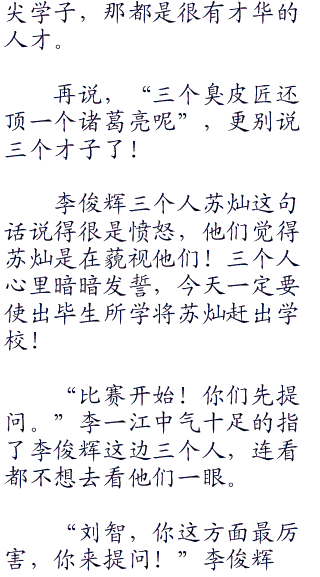 尖学子，那都是很有才华的
人才。
再说，“三个臭皮匠还
顶一个诸葛亮呢”，更别说
三个才子了！
李俊辉三个人苏灿这句
话说得很是愤怒，他们觉得
苏灿是在藐视他们！三个人
心里暗暗发誓，今天一定要
使出毕生所学将苏灿赶出学
校！
“比赛开始！你们先提
问。”李一江中气十足的指
了李俊辉这边三个人，连看
都不想去看他们一眼。
“刘智，你这方面最厉
害，你来提问！”李俊辉